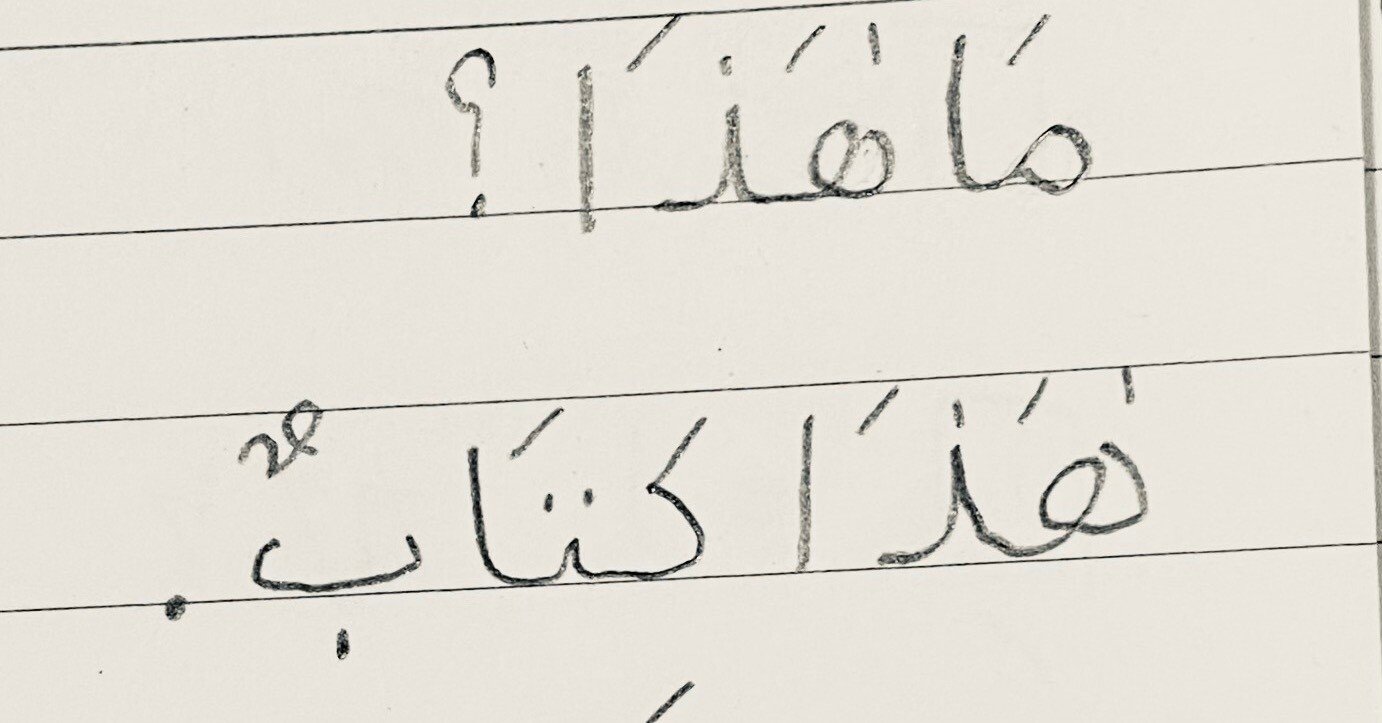 مَا هٰذَا ؟
هٰذَا كتَابٌ .